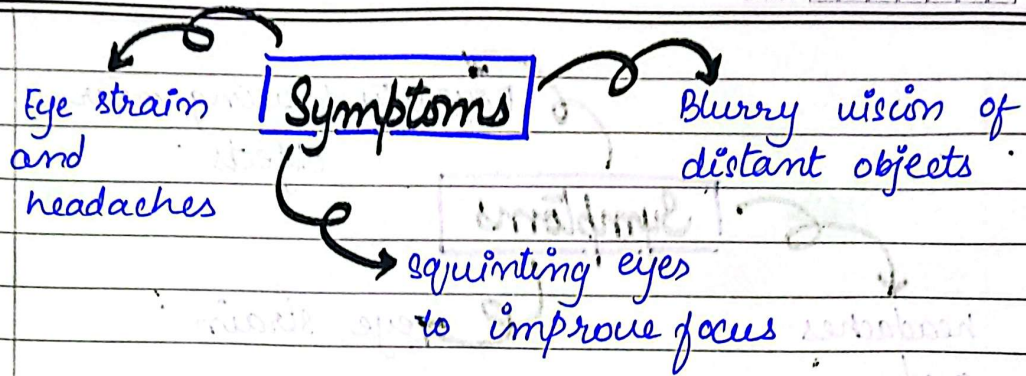 Symptoms
Eye strain
and
headaches
Blurry vision of
distant objects
squinting eyes
to improve focus